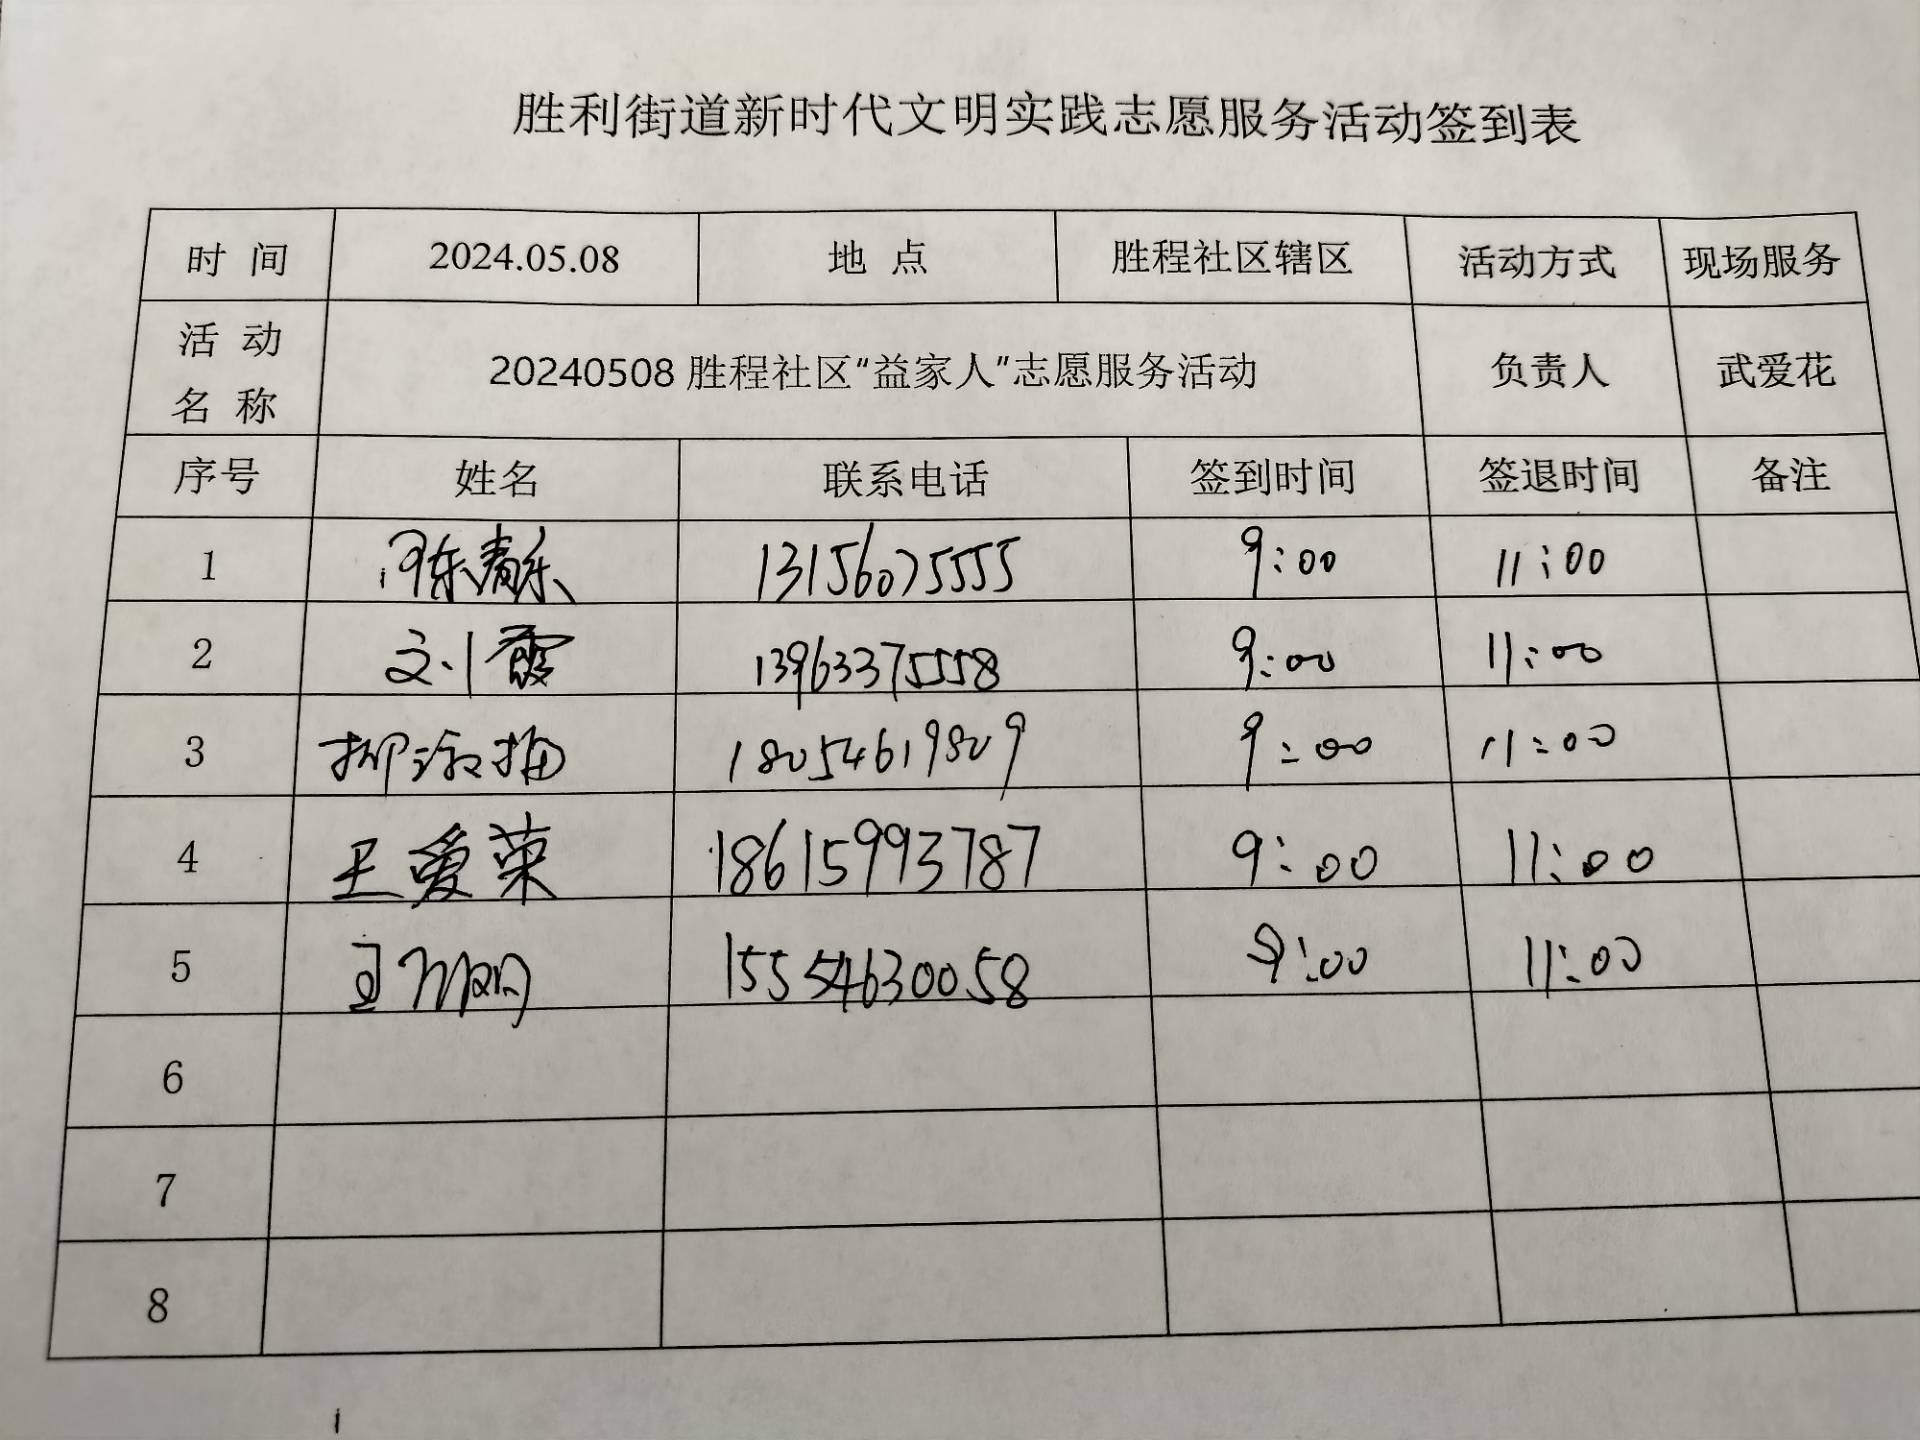 胜利街道新时代文明实践志愿服务活动签到表
时 间 2024.05.08 地 点 胜程社区辖区 活动方式 现场服务
活 动
名 称 20240508 胜程社区“益家人”志愿服务活动 负责人 武爱花
序号 姓名 联系电话 签到时间 签退时间 备注
1 13156075555 9:00 11:00
2 刘霞 13963375558 9:00 11:00
3 18054619809 9:00 11:00
4 王爱荣 18615993787 9:00 11:00
5 15554630058 9:00 11:00
6
7
8